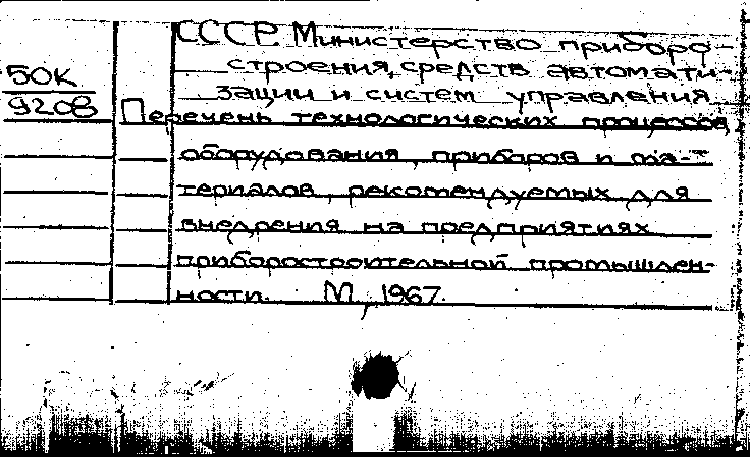 СССР. Министерство приборо-
строения, средств автомати-
зации и систем управления
50К
9208
Перечень технологических процессов,
оборудования, приборов и ма-
териалов, рекомендуемых для
внедрения на предприятиях
приборостроительной промышлен-
ности. М, 1967.